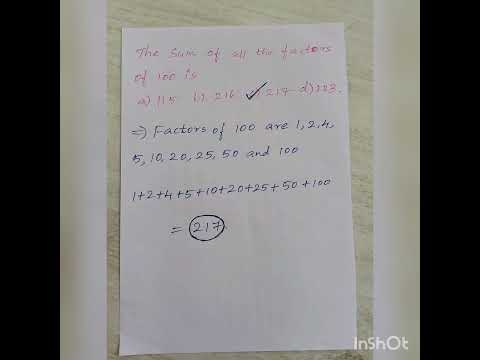 The Sum of all the factors
of 100 is
a) 115 b) 216 ✓ 217 d) 223.
⇒ Factors of 100 are 1, 2, 4,
5, 10, 20, 25, 50 and 100
1+2+4+5+10+20+25+50+100
= 217
InShOt